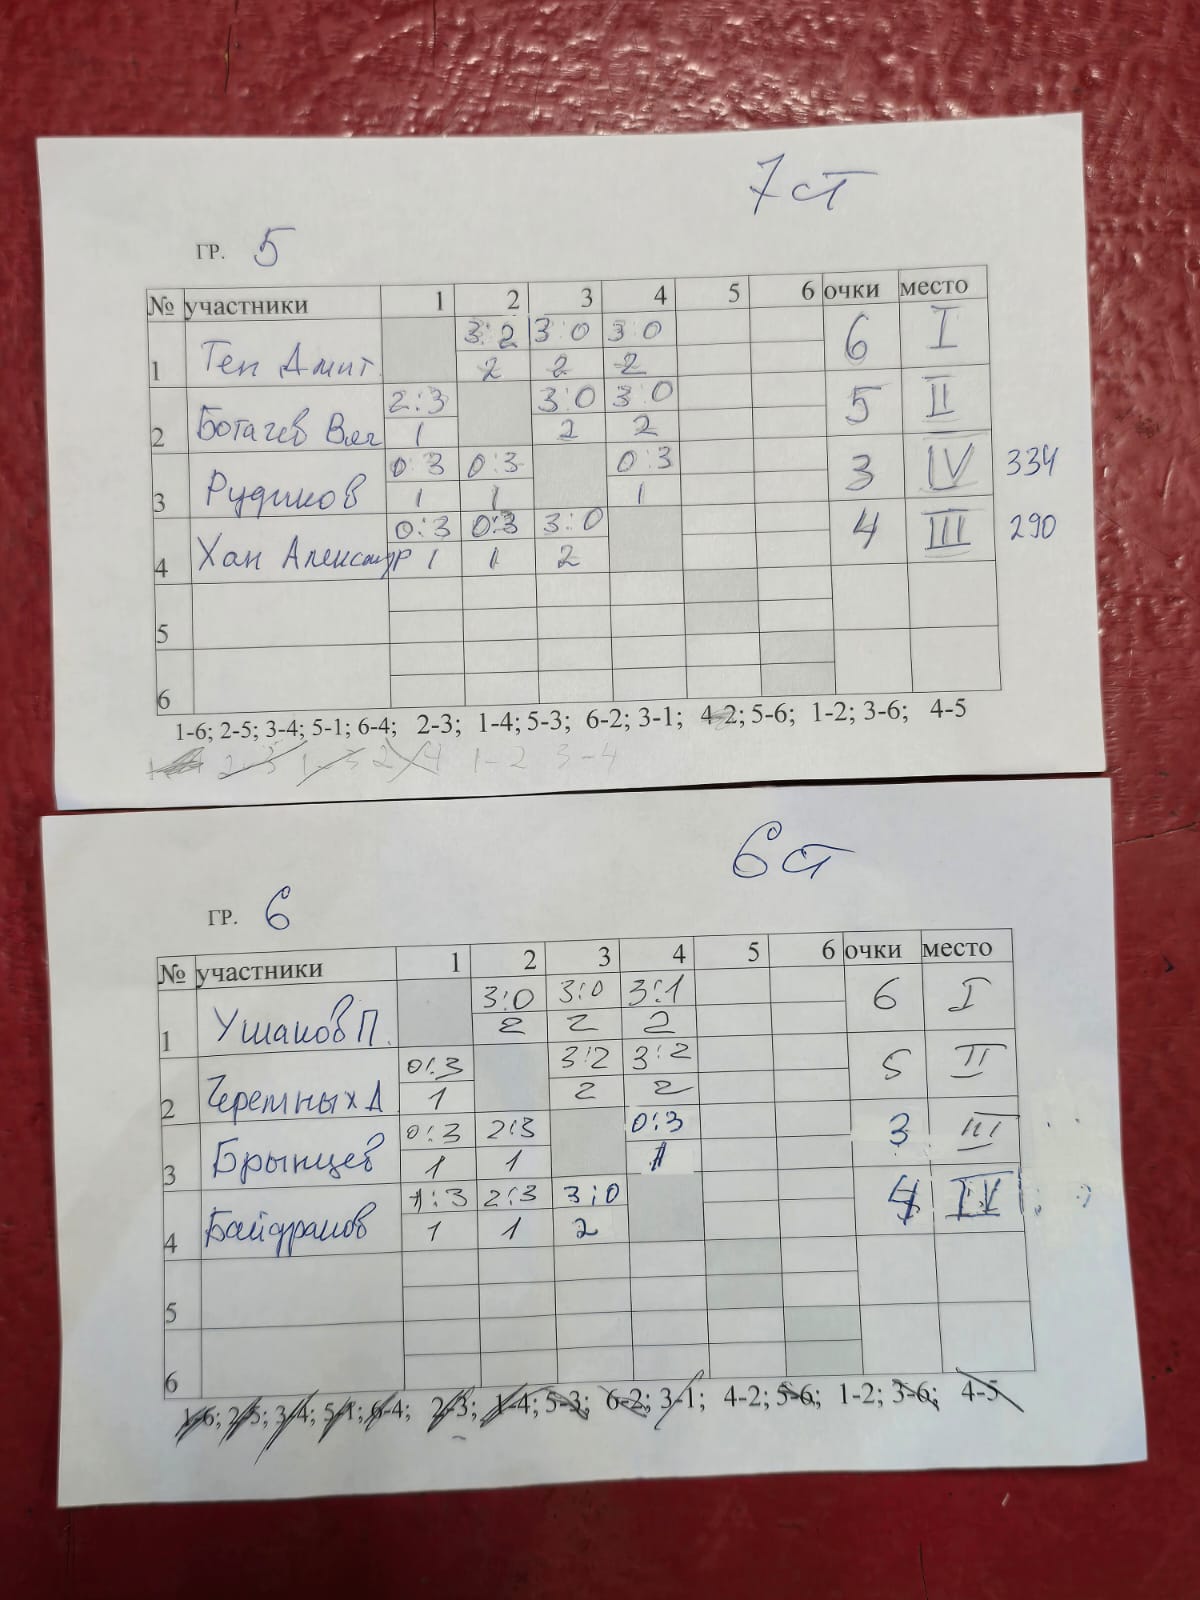 7 ст
ГР. 5
№ участники 1 2 3 4 5 6 очки место
1 Тен Дмит. 3:2 3:0 3:0 6 I
2 2 2
2 Богачев Вяч 2:3 3:0 3:0 5 II
1 2 2
3 Рудиков 0:3 0:3 0:3 3 IV 334
1 1 1
4 Хан Александр 0:3 0:3 3:0 4 III 290
1 1 2
5
6
1-6; 2-5; 3-4; 5-1; 6-4; 2-3; 1-4; 5-3; 6-2; 3-1; 4-2; 5-6; 1-2; 3-6; 4-5
2-3 1-3 2-4 1-2 3-4
6 ст
ГР. 6
№ участники 1 2 3 4 5 6 очки место
1 Ушаков П. 3:0 3:0 3:1 6 I
2 2 2
2 Черемных А 0:3 3:2 3:2 5 II
1 2 2
3 Брынцев 0:3 2:3 0:3 3 III
1 1 1
4 Байдраков 1:3 2:3 3:0 4 IV
1 1 2
5
6
1-6; 2-5; 3-4; 5-1; 6-4; 2-3; 1-4; 5-3; 6-2; 3-1; 4-2; 5-6; 1-2; 3-6; 4-5